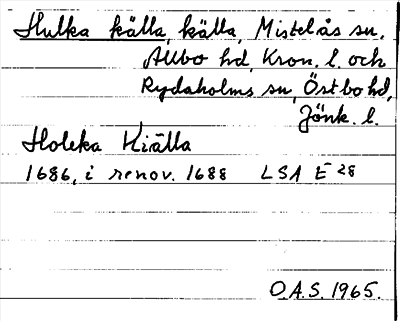 Hulka källa, källa, Mistelås sn,
Allbo hd, Kron. l. och
Rydaholms sn, Östbo hd,
Jönk. l.
Holeka Kiälla
1686, i renov. 1688 LSA E 28
O.A.S. 1965.